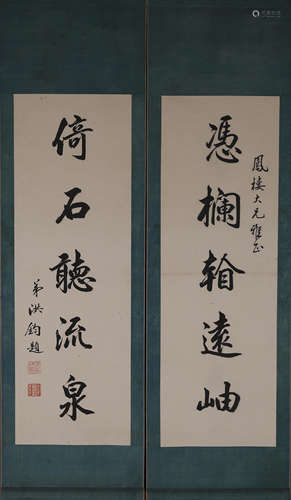 憑欄輸遠岫
鳳樓大兄雅正
倚石聽流泉
弟洪鈞題